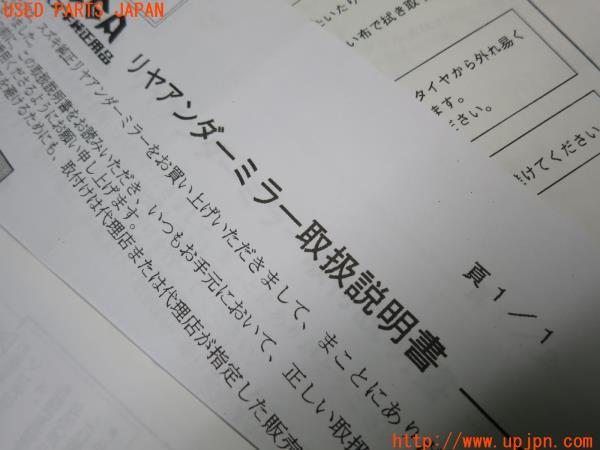 USED PARTS JAPAN
純正用品
リヤアンダーミラー取扱説明書
頁1／1
スズキ純正リヤアンダーミラーをお買い上げいただきまして、まことにあり
この取扱説明書をお読みいただき、いつもお手元において、正しい取扱
だけるようにお願い申し上げます。
を避けるためにも、取付けは代理店または代理店が指定した販売
といたり
い布で拭き取
タイヤから外れ易く
ます。
ださい。
けてください
http://www.upjpn.com/